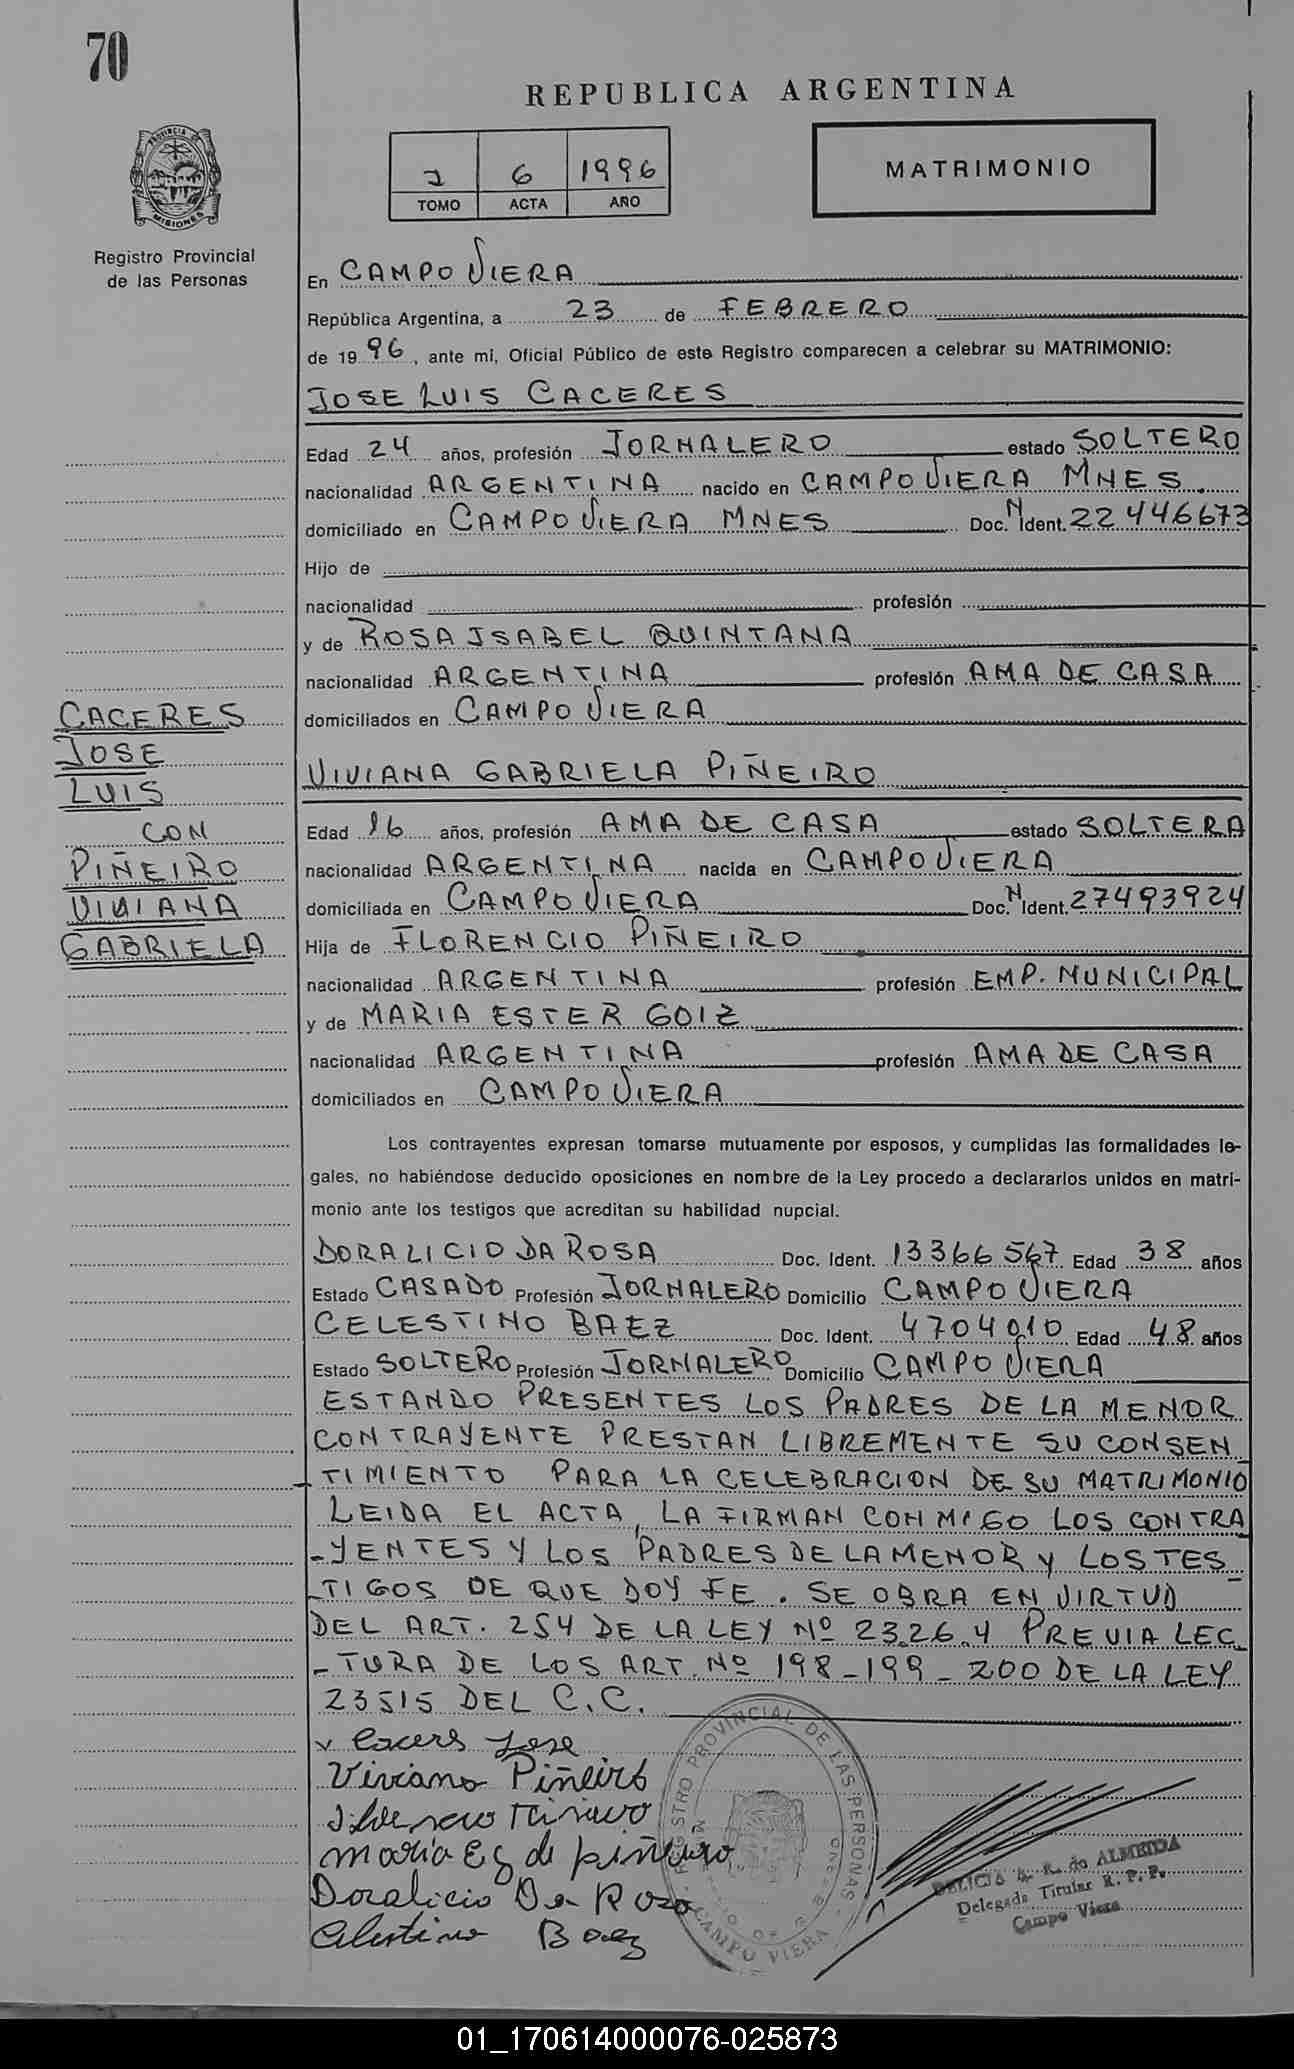 70
REPUBLICA ARGENTINA
1 6 1996
TOMO ACTA AÑO
MATRIMONIO
PROVINCIA DE
MISIONES
Registro Provincial
de las Personas
En CAMPO VIERA
República Argentina, a 23 de FEBRERO
de 1996, ante mi, Oficial Público de este Registro comparecen a celebrar su MATRIMONIO:
JOSE LUIS CACERES
Edad 24 años, profesión JORNALERO estado SOLTERO
nacionalidad ARGENTINA nacido en CAMPO VIERA MNES.
domiciliado en CAMPO VIERA MNES Doc. N Ident. 22446673
Hijo de
nacionalidad profesión
y de ROSA ISABEL QUINTANA
nacionalidad ARGENTINA profesión AMA DE CASA
domiciliados en CAMPO VIERA
CACERES
JOSE
LUIS
CON
PIÑEIRO
VIVIANA
GABRIELA
VIVIANA GABRIELA PIÑEIRO
Edad 16 años, profesión AMA DE CASA estado SOLTERA
nacionalidad ARGENTINA nacida en CAMPO VIERA
domiciliada en CAMPO VIERA Doc. N Ident. 27493924
Hija de FLORENCIO PIÑEIRO
nacionalidad ARGENTINA profesión EMP. MUNICIPAL
y de MARIA ESTER GOIZ
nacionalidad ARGENTINA profesión AMA DE CASA
domiciliados en CAMPO VIERA
Los contrayentes expresan tomarse mutuamente por esposos, y cumplidas las formalidades le-
gales, no habiéndose deducido oposiciones en nombre de la Ley procedo a declararlos unidos en matri-
monio ante los testigos que acreditan su habilidad nupcial.
DORALICIO DA ROSA Doc. Ident. 13366567 Edad 38 años
Estado CASADO Profesión JORNALERO Domicilio CAMPO VIERA
CELESTINO BAEZ Doc. Ident. 4704010 Edad 48 años
Estado SOLTERO Profesión JORNALERO Domicilio CAMPO VIERA
ESTANDO PRESENTES LOS PADRES DE LA MENOR
CONTRAYENTE PRESTAN LIBREMENTE SU CONSEN
-TIMIENTO PARA LA CELEBRACION DE SU MATRIMONIO
LEIDA EL ACTA, LA FIRMAN CONMIGO LOS CONTRA
-YENTES Y LOS PADRES DE LA MENOR Y LOS TES-
-TIGOS DE QUE DOY FE. SE OBRA EN VIRTUD
DEL ART. 254 DE LA LEY Nº 23.26.4 PREVIA LEC
-TURA DE LOS ART. Nº 198-199-200 DE LA LEY
23515 DEL C.C.
Caceres Jose
Viviana Piñeiro
Maria E G de piñeiro
Doralicio Da Rosa
Celestino Baez
REGISTRO PROVINCIAL DE LAS PERSONAS
CAMPO VIERA
DELICIA A. R. do ALMEIDA
Delegada Titular R. P. P.
Campo Viera
01_170614000076-025873